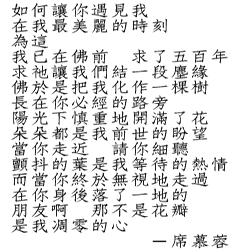 如何讓你遇見我
在我最美麗的時刻
為這
我已在佛前　求了五百年
求祂讓我們結一段塵緣
佛於是把我化作一棵樹
長在你必經的路旁
陽光下慎重地開滿了花
朵朵都是我前世的盼望
當你走近　請你細聽
顫抖的葉是我等待的熱情
而當你終於無視地走過
在你身後落了一地的
朋友啊　那不是花瓣
是我凋零的心
—席慕蓉